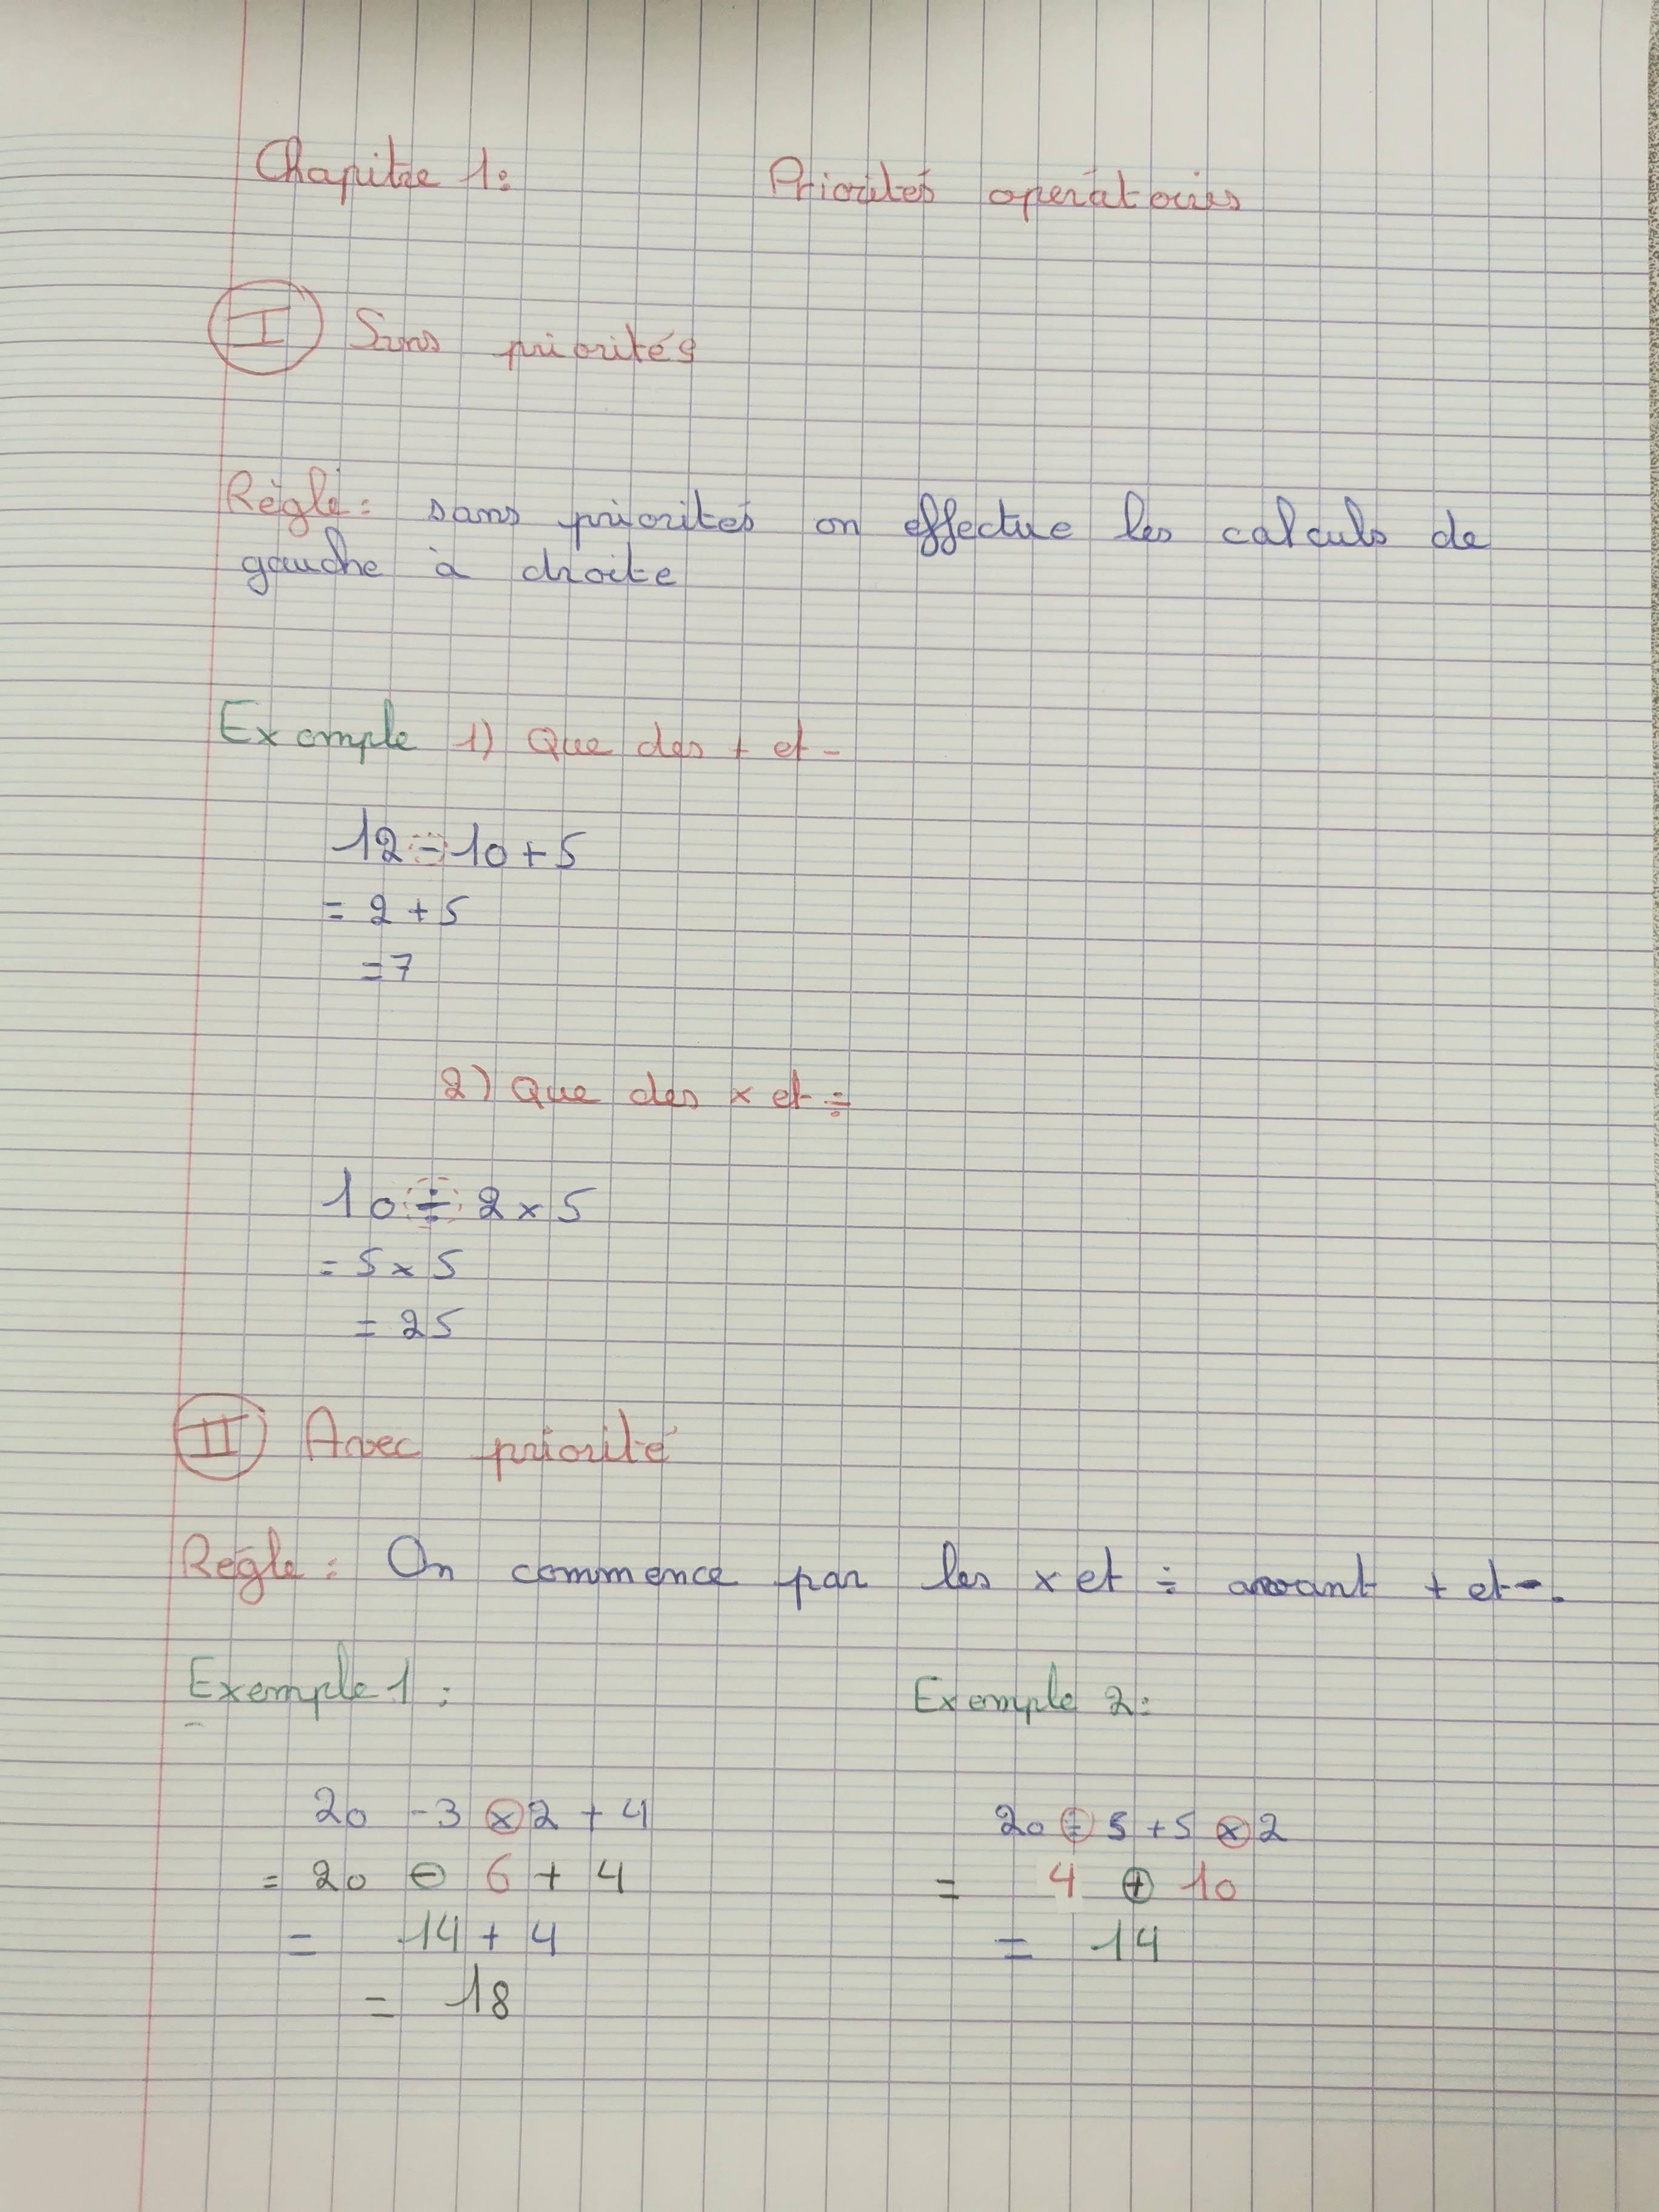 Chapitre 1: Priorités opératoires
I Sans priorités
Règle: sans priorités on effectue les calculs de
gauche à droite
Exemple 1) Que des + et -
12 - 10 + 5
= 2 + 5
= 7
2) Que des × et ÷
10 ÷ 2 × 5
= 5 × 5
= 25
II Avec priorité
Règle: On commence par les × et ÷ avant + et -.
Exemple 1: Exemple 2:
20 - 3 × 2 + 4 20 ÷ 5 + 5 × 2
= 20 - 6 + 4 = 4 + 10
= 14 + 4 = 14
= 18